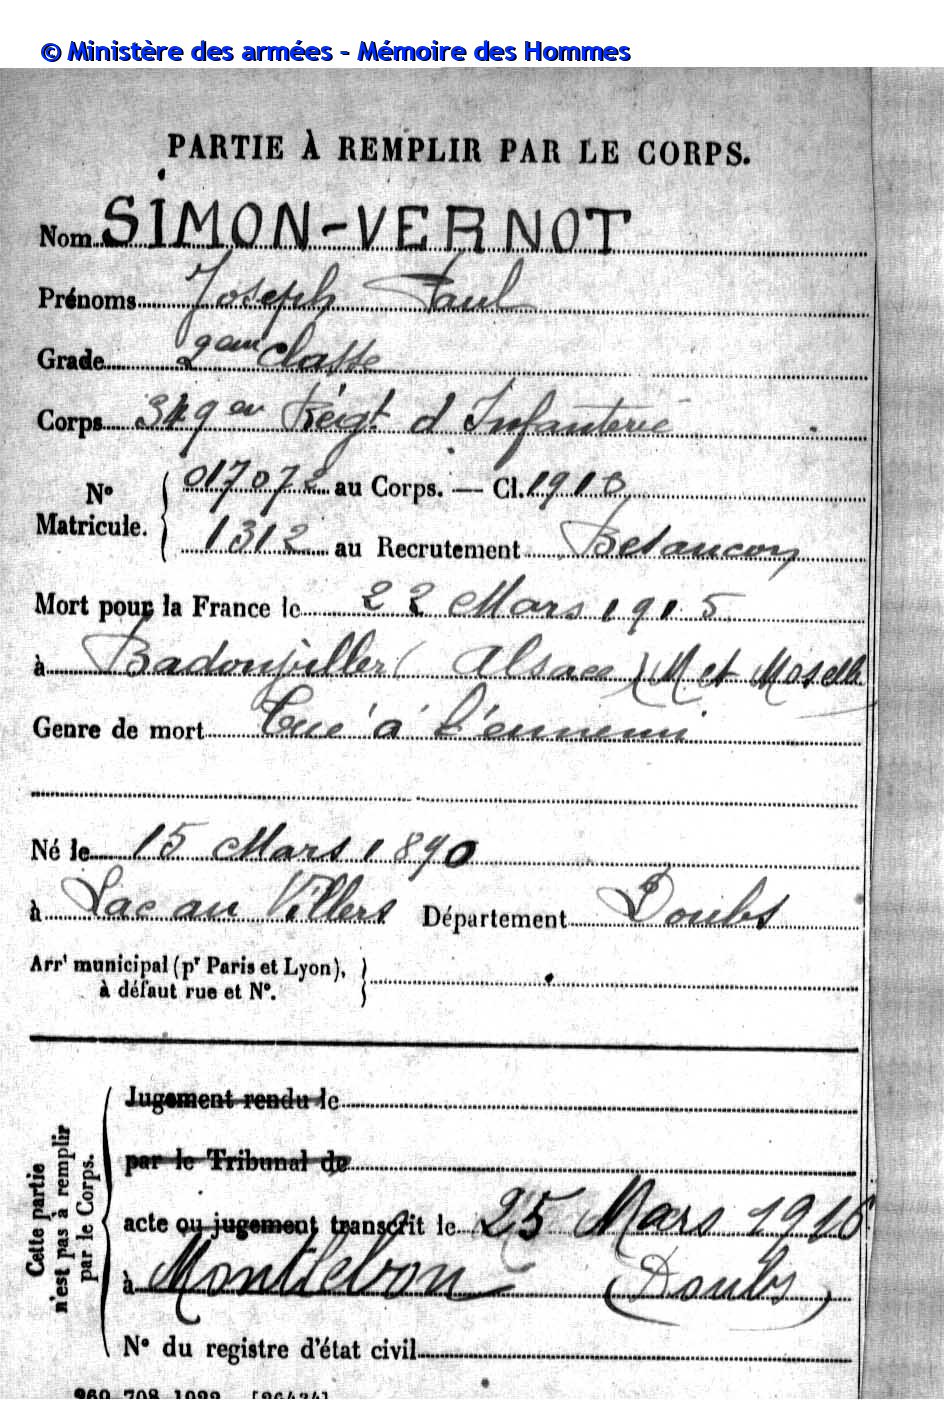 © Ministère des armées - Mémoire des Hommes
PARTIE À REMPLIR PAR LE CORPS.
Nom SIMON-VERNOT
Prénoms Joseph Paul
Grade 2eme classe
Corps 349em Régt d'Infanterie
N° Matricule. 017072 au Corps. — Cl. 1910
1312 au Recrutement Besancon
Mort pour la France le 22 Mars 1915
à Badonviller (Alsace) M. et Moselle
Genre de mort Tué à l'ennemi
Né le 15 Mars 1890
à Lac au Villers Département Doubs
Arrt municipal (pr Paris et Lyon),
à défaut rue et N°.
Cette partie
n'est pas à remplir
par le Corps.
Jugement rendu le
par le Tribunal de
acte ou jugement transcrit le 25 Mars 1916
à Montlebon (Doubs)
N° du registre d'état civil
960-708-1922. [26434]